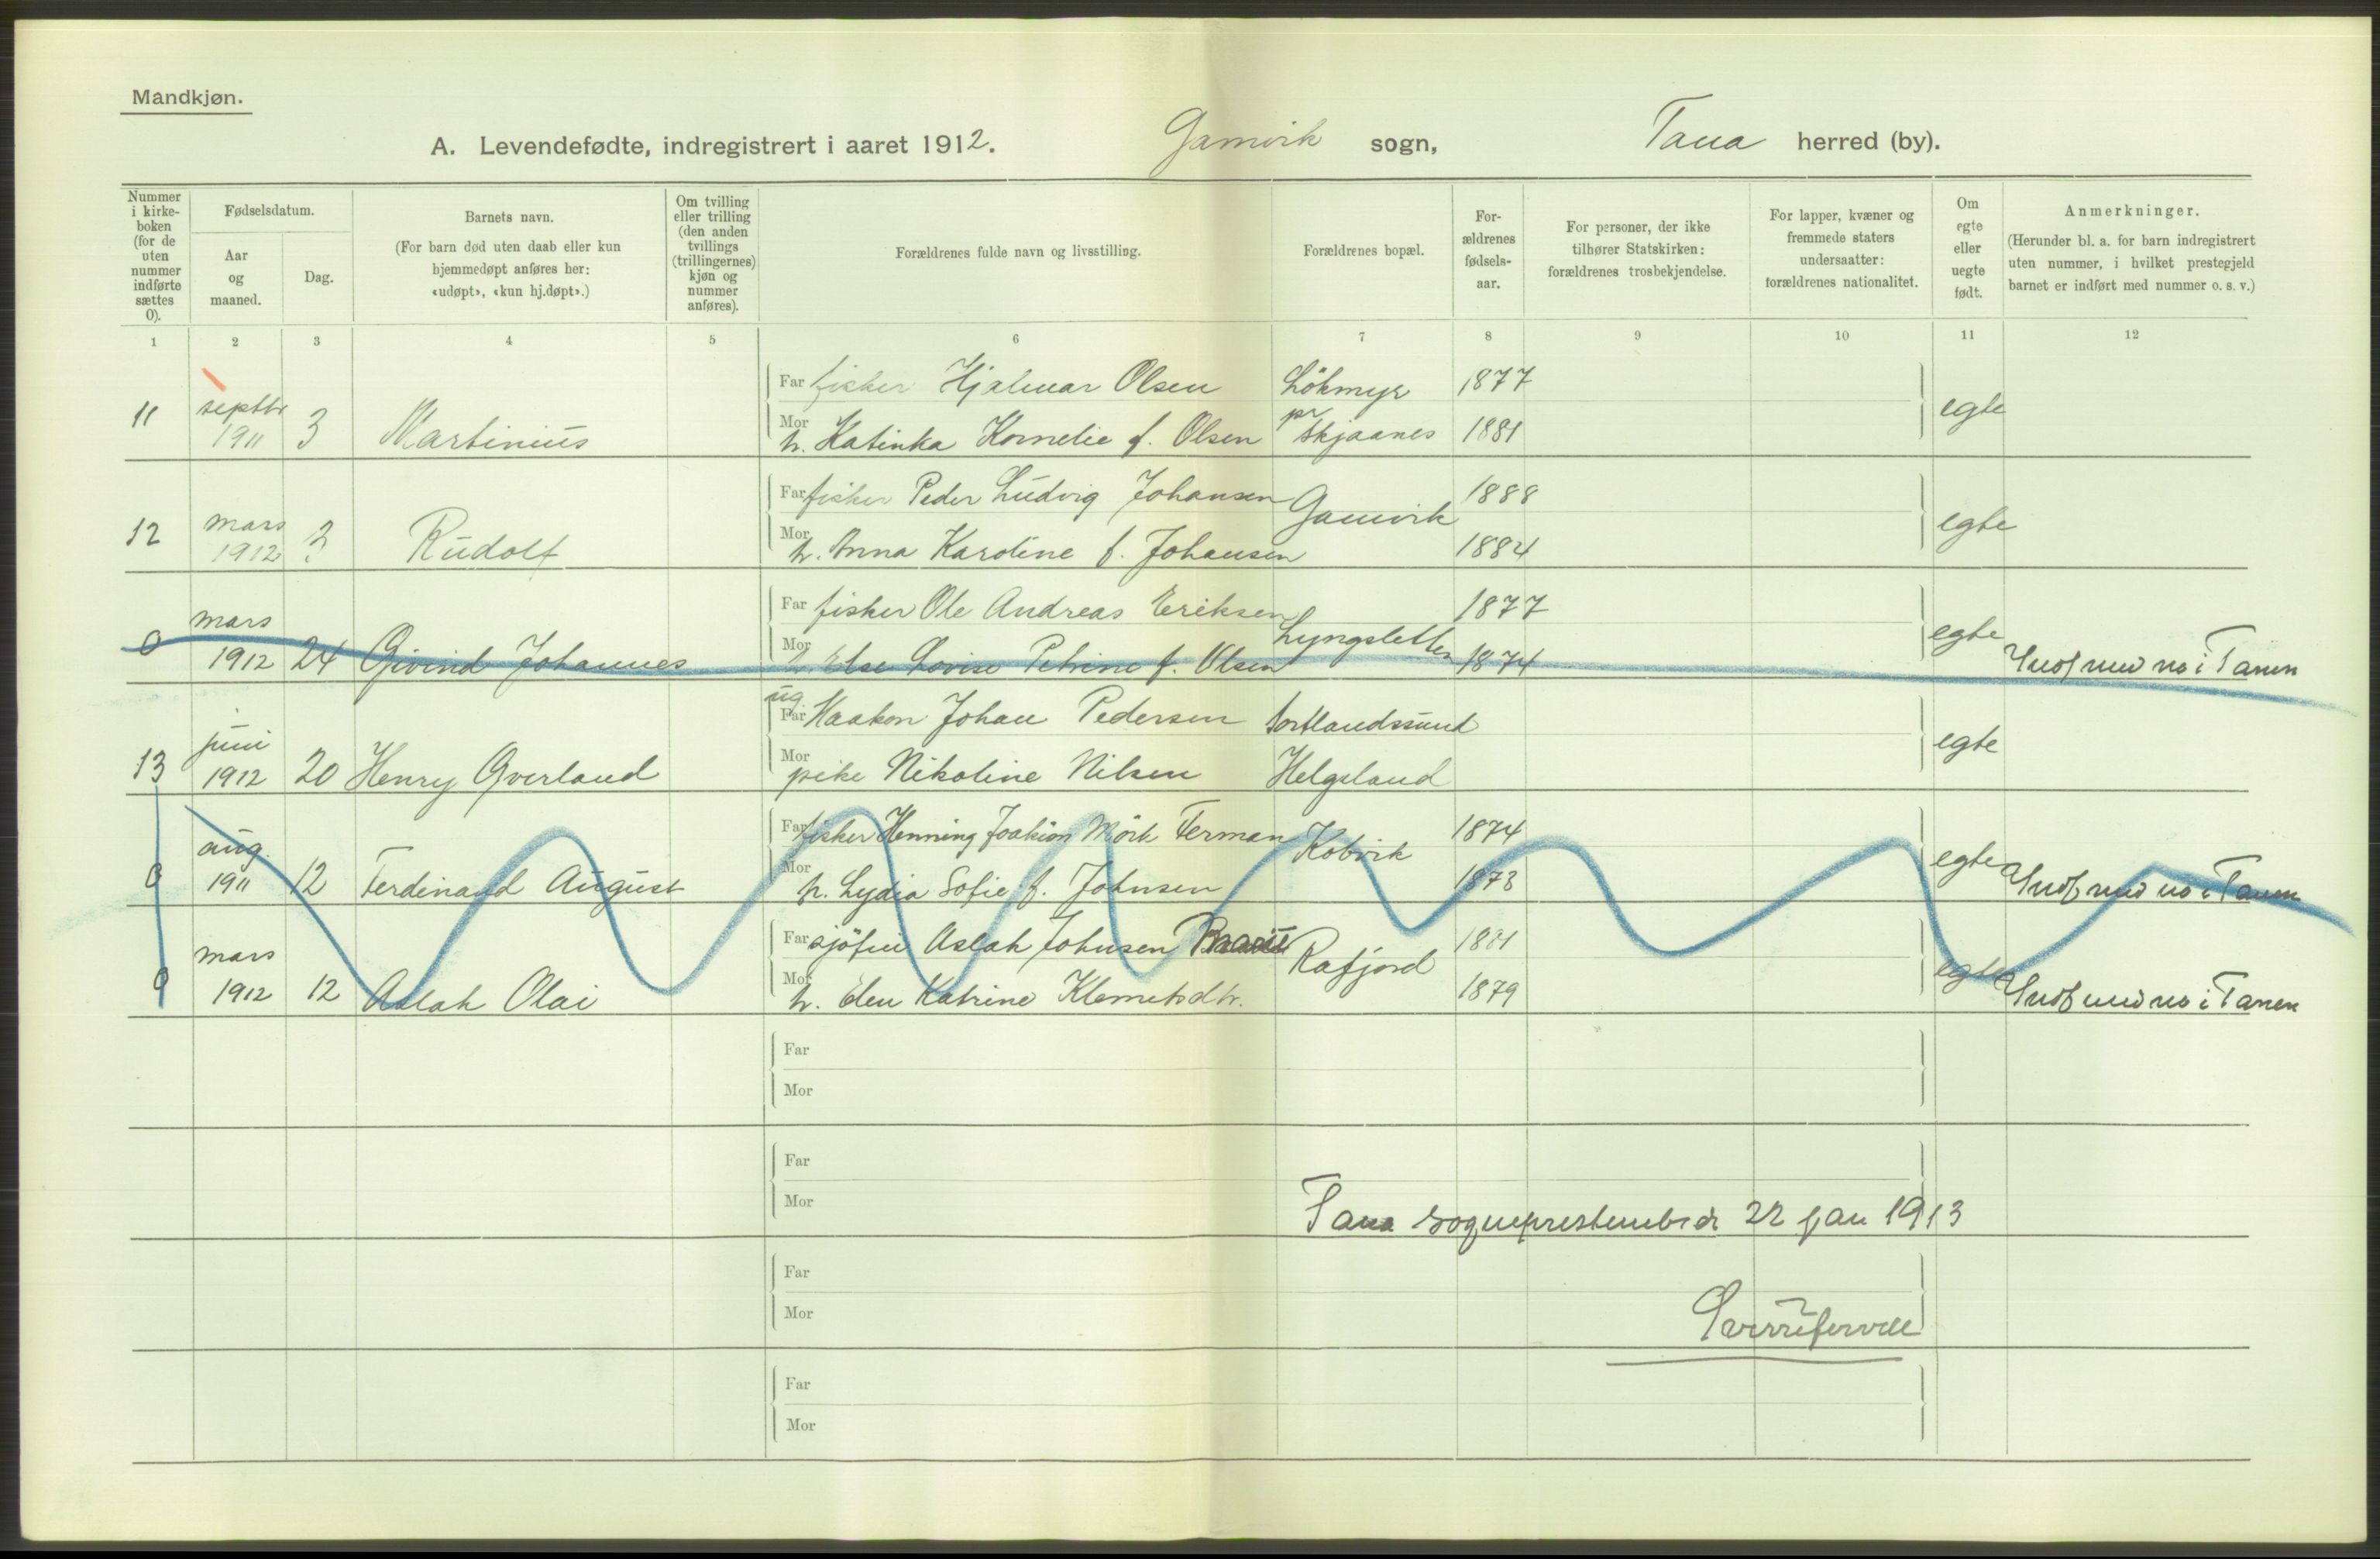 Mandkjøn.
A. Levendefødte, indregistrert i aaret 1912. Gamvik sogn, Tana herred (by).
Nummer i kirke-boken (for de uten nummer indførte sættes 0).
Fødselsdatum.
Aar og maaned.
Dag.
Barnets navn.
(For barn død uten daab eller kun hjemmedøpt anføres her: «udøpt», «kun hj.døpt».)
Om tvilling eller trilling (den anden tvillings (trillingernes) kjøn og nummer anføres).
Forældrenes fulde navn og livsstilling.
Forældrenes bopæl.
For-ældrenes fødsels-aar.
For personer, der ikke tilhører Statskirken: forældrenes trosbekjendelse.
For lapper, kvæner og fremmede staters undersaatter: forældrenes nationalitet.
Om egte eller uegte født.
Anmerkninger.
(Herunder bl. a. for barn indregistrert uten nummer, i hvilket prestegjeld barnet er indført med nummer o. s. v.)
1 2 3 4 5 6 7 8 9 10 11 12
Far fisker Hjalmar Olsen Lökmyr 1877
11 septbr 1911 3 Martinius egte
Mor h. Katinka Kornelie f. Olsen pr Skjaanes 1881
Far fisker Peder Ludvig Johansen Gamvik 1888
12 mars 1912 3 Rudolf egte
Mor h. Anna Karoline f. Johansen 1884
Far fisker Ole Andreas Eriksen 1877
0 mars 1912 24 Øivind Johannes Lyngsletten egte
Mor h. Else Lovise Petrine f. Olsen 1874 Indf med no i Tanen
ug.
Far Haakon Johan Pedersen Sortlandssund
13 juni 1912 20 Henry Øverland egte
Mor pike Nikoline Nilsen Helgeland
Far fisker Henning Joakim Mörk Ferman Kobvik 1874
0 aug. 1911 12 Ferdinand August egte
Mor h. Lydia Sofie f. Johnsen 1873 Indf med no i Tanen
Far sjöfin Aslak Johnsen Rafjord 1881
0 mars 1912 12 Aslak Olai egte
Mor h. Elen Katrine Klemetsdtr. 1879 Indf med no i Tanen
Far
Mor
Far
Mor
Tana sogneprestembede 22 jan 1913
Far
Mor
Far
Mor